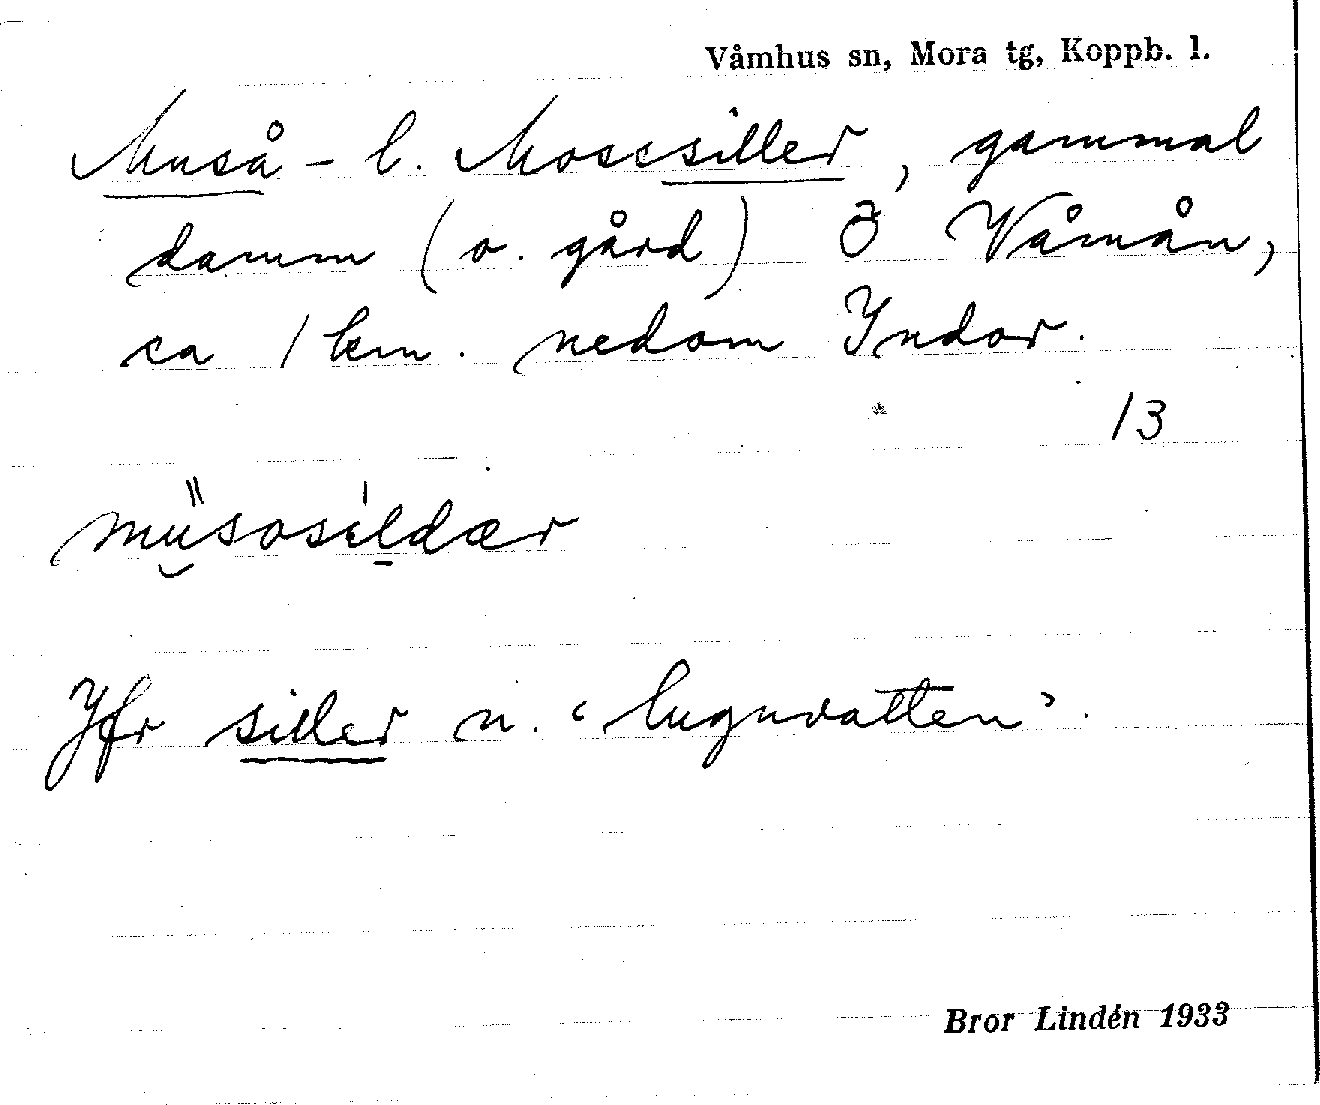 Våmhus sn, Mora tg, Koppb. l.
Muså- l. Mosesiller, gammal
damm (o. gård) Ö Våmån,
ca 1 km. nedom Indor.
13
Jfr siller n. ‘lugnvatten’.
Bror Lindén 1933